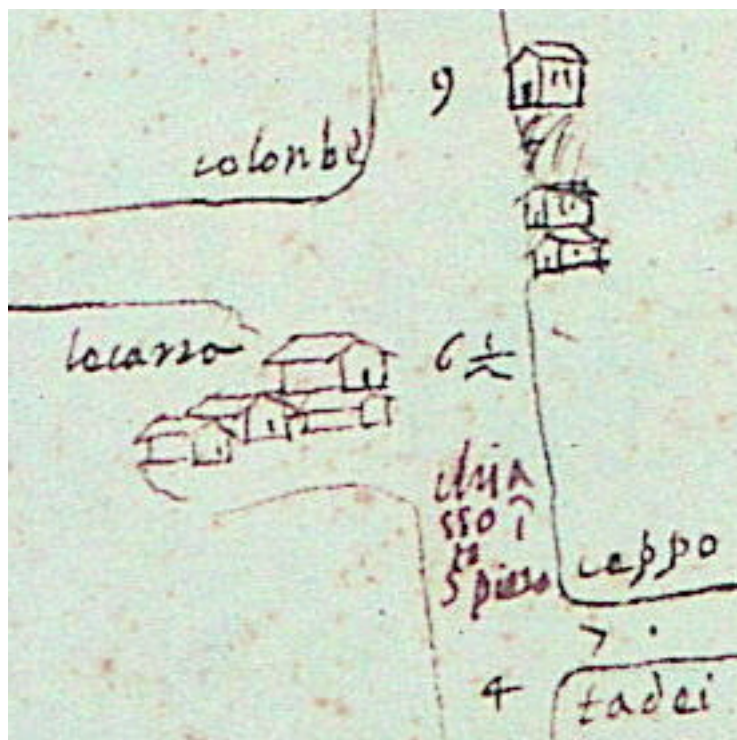 9
colonbe
locarno
6 1/2
chia
sso î
S piero
ceppo
7 .
4
tadei